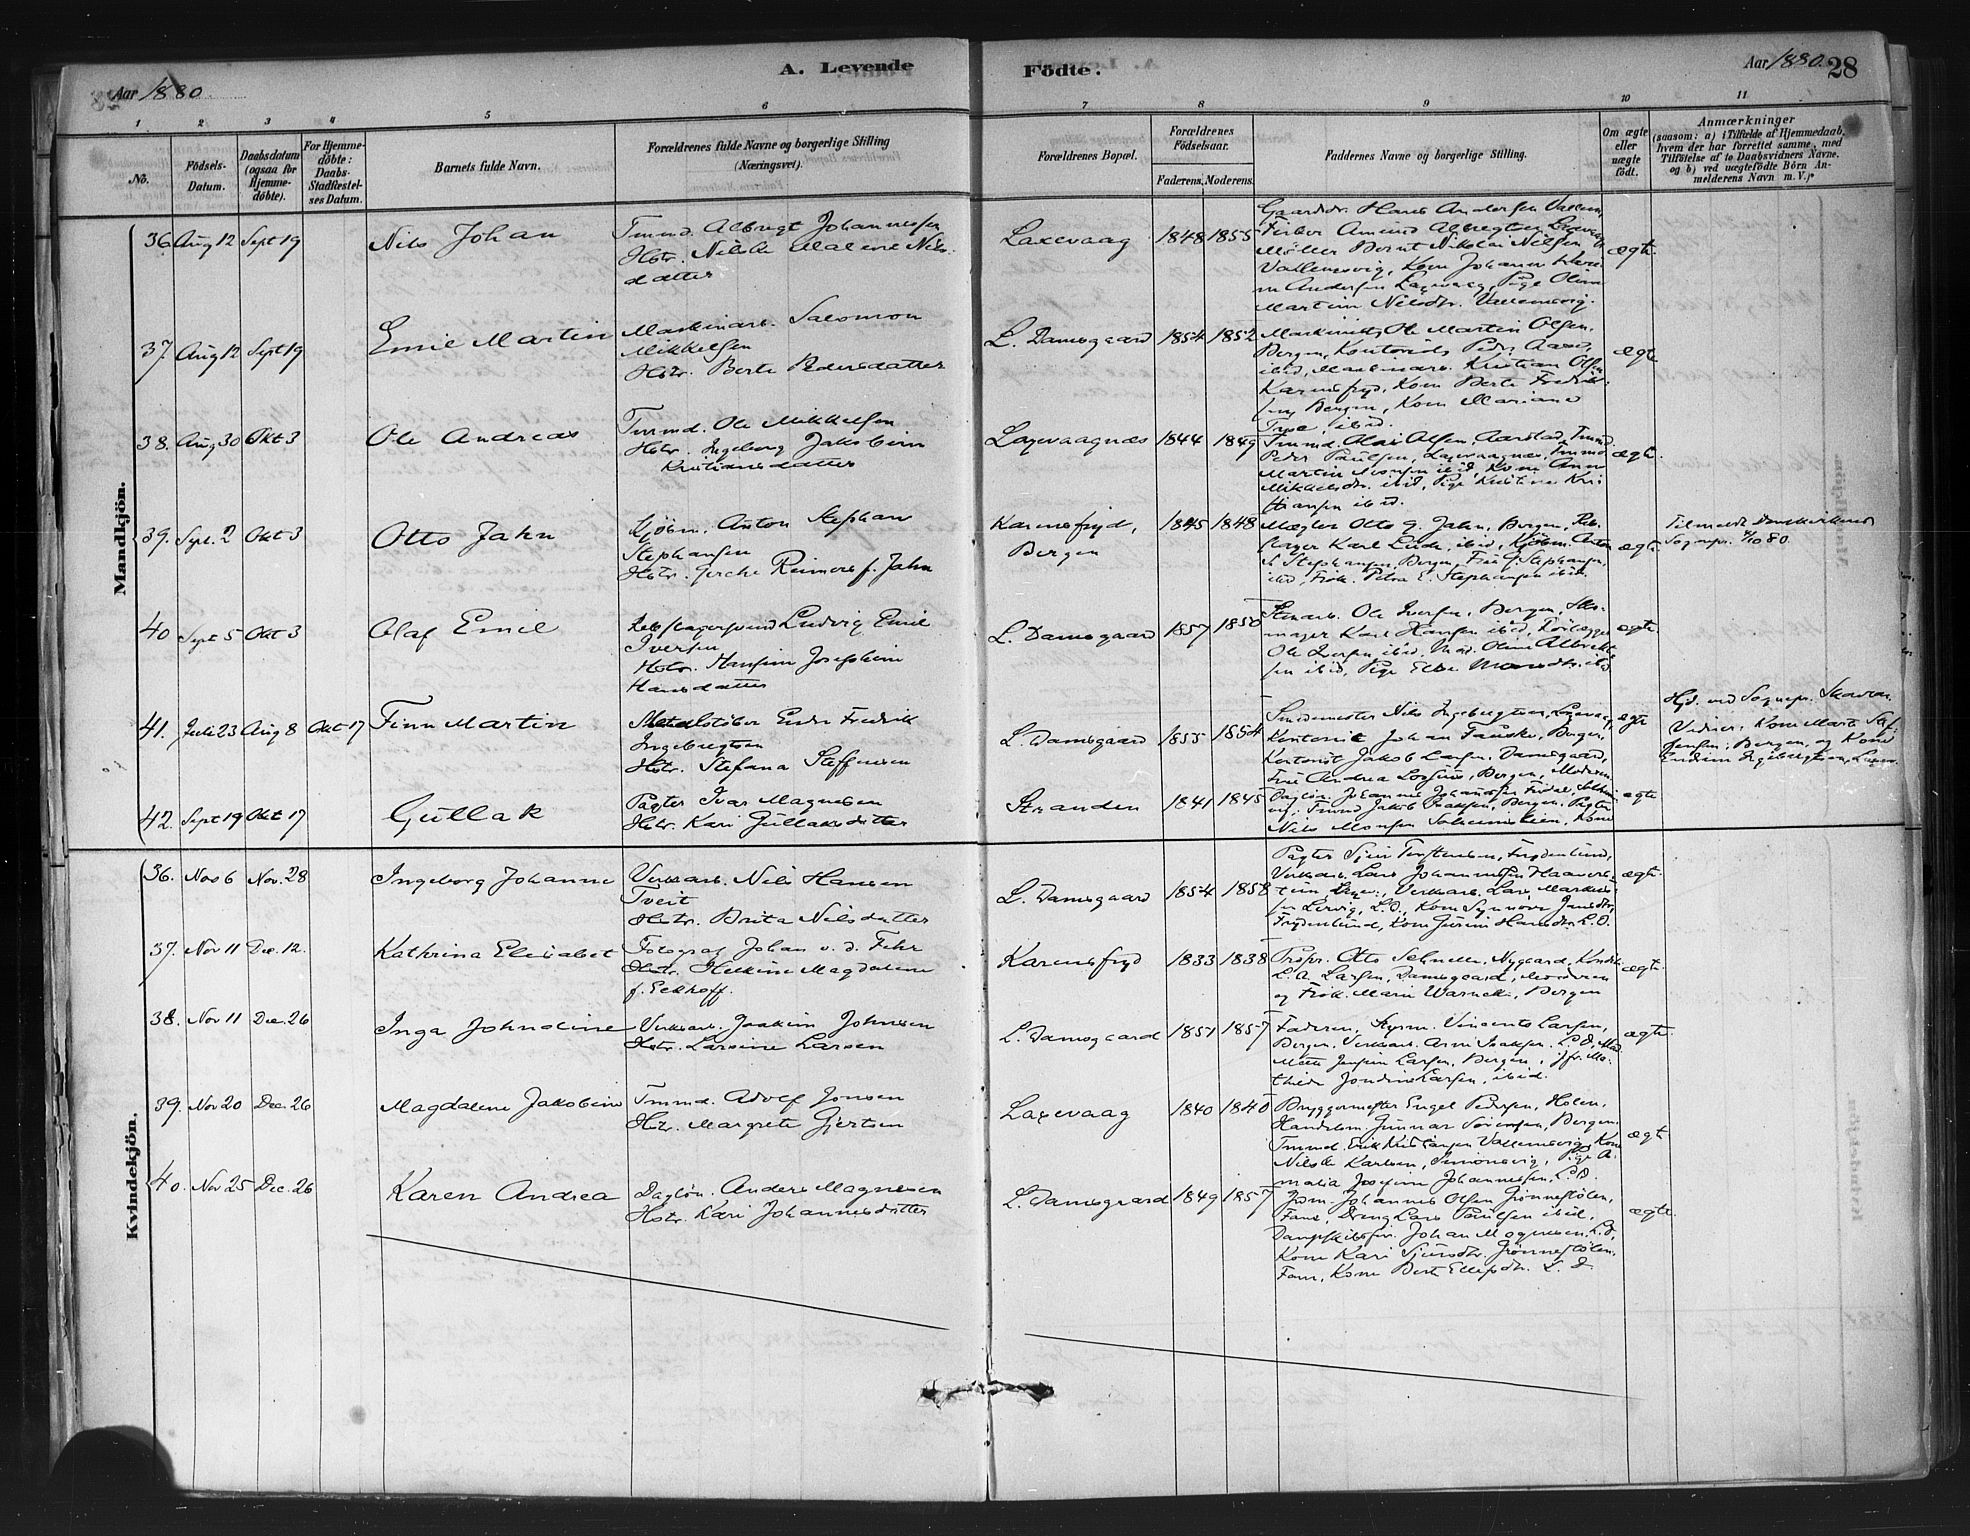 Aar 1880
A. Levende
Födte.
Aar 1880. 28
1 2 3 4 5 6 7 8 9 10 11
No.
Födsels-Datum.
Daabsdatum (ogsaa for Hjemme-döbte).
For Hjemme-döbte: Daabs-Stadfestel-ses Datum.
Barnets fulde Navn.
Forældrenes fulde Navne og borgerlige Stilling
(Næringsvei).
Forældrenes Bopæl.
Forældrenes Födselsaar.
Faderens. Moderens.
Faddernes Navne og borgerlige Stilling.
Om ægte eller uægte födt.
Anmærkninger
(saasom: a) i Tilfælde af Hjemmedaab,
hvem der har forrettet samme, med
Tilföielse af to Daabsvidners Navne.
og b) ved uægtefödte Börn An-
melderens Navn m. V.)
Mandkjön.
36. Aug 12 Sept 19 Nils Johan
Tmmd. Albregt Johannesen
Hstr. Nilsle Malene Nils-
datter
Laxevaag 1848 1855
Gaardbr. Hans Andersen
Amund Albregtsen
Møller Bernt Nikolai Nilsen
Kone Johanne
Andersen Laxevaag, Pige Oline
Martine Nilsdtr.
ægte.
37. Aug 12 Sept 19 Emil Martin
Maskinarb. Salomon
Mikkelsen
Hstr. Berte Pedersdatter
L. Damsgaard 1854 1852
Maskinist Ole Martin Olsen,
Bergen, Kontorist Peder
ibid, Maskinarb. Kristian Olsen
Karensfryd, Kone Berte
Bergen, Kone Mariane
ibid.
ægte
38. Aug 30 Okt 3 Ole Andreas
Tmmd. Ole Mikkelsen
Hstr. Ingeborg Jakobine
Kristiansdatter
Laxevaagnæs 1844 1849
Tmmd. Olai Olsen, Aarstad, Tmmd.
Peder Paulsen, Laxevaagnæs, Tmmd.
Martin Monsen ibid, Kone Anne
Mikkelsdtr. ibid, Pige Kristine Kri-
stiansen ibid.
ægte.
39. Sept. 2 Okt 3 Otto Jahn
Kjøbm. Anton Stephan
Stephansen
Hstr. Gerche Reimers f. Jahn
Karensfryd,
Bergen
1845 1848
Mægler Otto G. Jahn, Bergen, Reb-
slager Karl ibid, Kjøbm. Anton
S. Stephansen, Bergen, Frü G. Stephansen,
ibid, Frøk. Petra E. Stephansen ibid.
ægte.
Tilmeldt Domkirkens
Sognepr. 80.
40 Sept 5 Okt 3 Olaf Emil
Rebslagersvend Ludvig Emil
Iversen
Hstr. Hansine Josephine
Hansdatter
L. Damsgaard 1857 1850
Stenarb. Ole Iversen, Bergen, Sko-
mager Karl Hansen ibid,
Ole Iversen ibid, Mad. Oline Albrekt-
sen ibid, Pige ibid
ægte.
41. Juli 23 Aug 8 Okt 17 Finn Martin
Metalstøber Endre Fredrik
Ingebregtsen
Hstr. Stefana Steffensen
L. Damsgaard 1855 1854
Smedemester Nils Ingebregtsen, Laxevaag,
Kontorist Johan Bergen,
Kontorist Jakob Larsen, Damsgaard,
Frü Andrea Bergen, Moderen
ægte
Hjd. ved Sognepr.
Vidner, Kone Marte
Bergen, og Kone
Ingebregtsen, Laxev.
42. Sept 19 Okt 17 Güllak
Pagter Ivar Magnesen
Hstr. Kari Güllaksdatter
Stranden 1841 1845
Dagløn. Johannes
Tmmd Jakob Isaksen, Bergen, Pagter
Nils Monsen Solheimslien, Kone
ægte
Kvindekjön.
36. Nov 6 Nov. 28 Ingeborg Johanne
Verksarb. Nils Hansen
Tveit
Hstr. Brita Nilsdatter
L. Damsgaard 1854 1858
Pagter Sjur Torstensen, Frydenlund,
Verksarb. Lars Johannessen
Verksarb. Lars
L.D., Kone Synnøve Jansdtr,
Frydenlund, Kone Gürine Hansdtr. L.D.
ægte.
37. Nov 11 Dec. 12. Kathrina Elisabet
Fotograf Johan v. d. Fehr
Hstr. Helkine Magdalene
f. Eckhoff.
Karensfryd 1833 1838
Propr. Otto Schnelle, Nygaard,
L. A. Larsen, Damsgaard, Moderen
og Frøk. Marie Warncke, Bergen
ægte.
38. Nov 11 Dec. 26 Inga Johndine
Verksarb. Joakim Johnsen
Hstr. Larsine Larsen
L. Damsgaard 1851 1857
Faderen, Styrm. Vincents Larsen,
Bergen, Verksarb. Arne Isaksen, L.D, Mad.
Mette Jensine Larsen, Bergen, Jfr. Ma-
thilde Jondine Larsen, ibid.
ægte.
39. Nov 20 Dec. 26 Magdalene Jakobine
Tmmd. Adolf Jonsen
Hstr. Margrete Gjertsen
Laxevaag 1840 1840
Bryggermester Engel Pedersen, Holen,
Handelsm. Gunnar Sørensen, Bergen
Tmmd. Erik Kristiansen Kone
Nilsle Karlsen, Simonsvig, Pige A-
malia Josefine Johannessen, L.D.
ægte
40. Nov 25 Dec. 26 Karen Andrea
Dagløn. Anders Magnesen
Hstr. Kari Johannesdatter
L. Damsgaard 1849 1857
Johannes Olsen Grønnestølen,
Fane, Dreng Lars Paulsen ibid,
Johan Mogensen, L.D,
Kone Kari Sjursdtr. Grønnestølen
Fane, Kone Berte Ellefsdtr. L. D.
ægte.